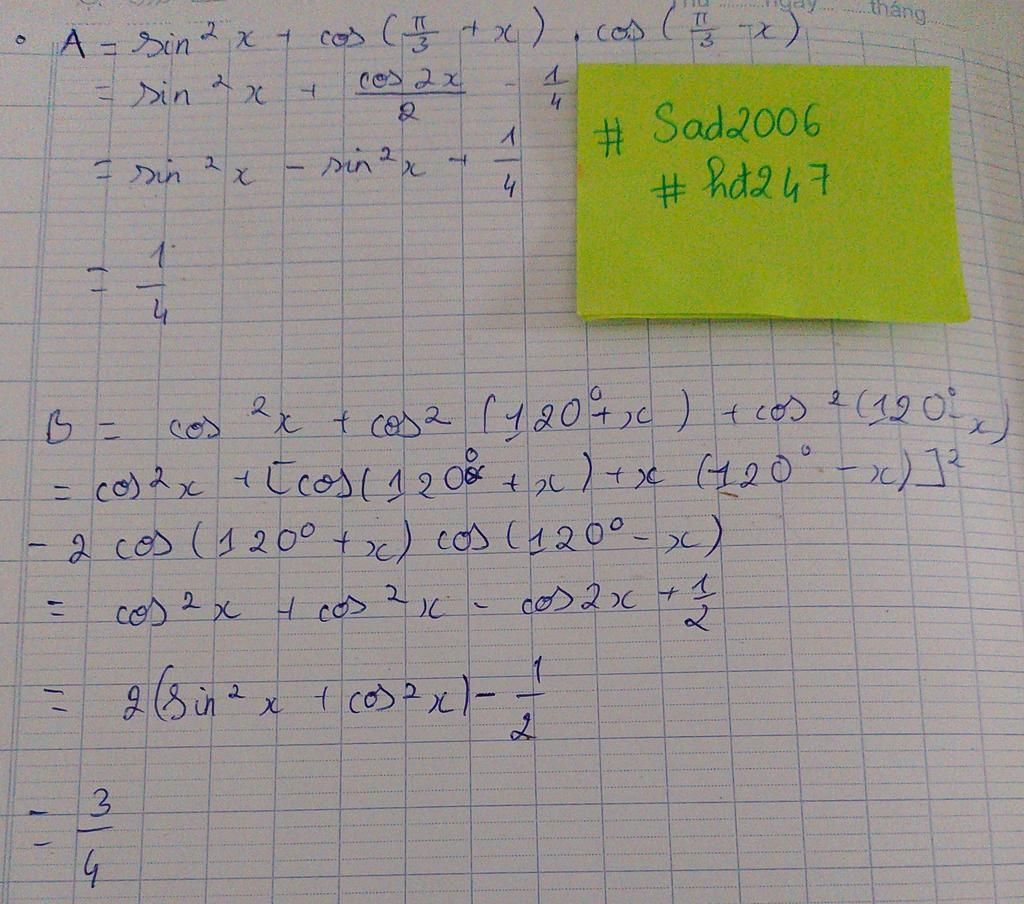 Thứ ........ ngày ........ tháng
• A = sin²x + cos(π/3 + x) . cos(π/3 - x)
= sin²x + cos2x/2 - 1/4
= sin²x - sin²x + 1/4
= 1/4
# Sad2006
# hđ247
B = cos²x + cos²(120° + x) + cos²(120° - x)
= cos²x + [cos(120° + x) + x (120° - x)]²
- 2 cos(120° + x) cos(120° - x)
= cos²x + cos²x - cos2x + 1/2
= 2(sin²x + cos²x) - 1/2
= 3/4